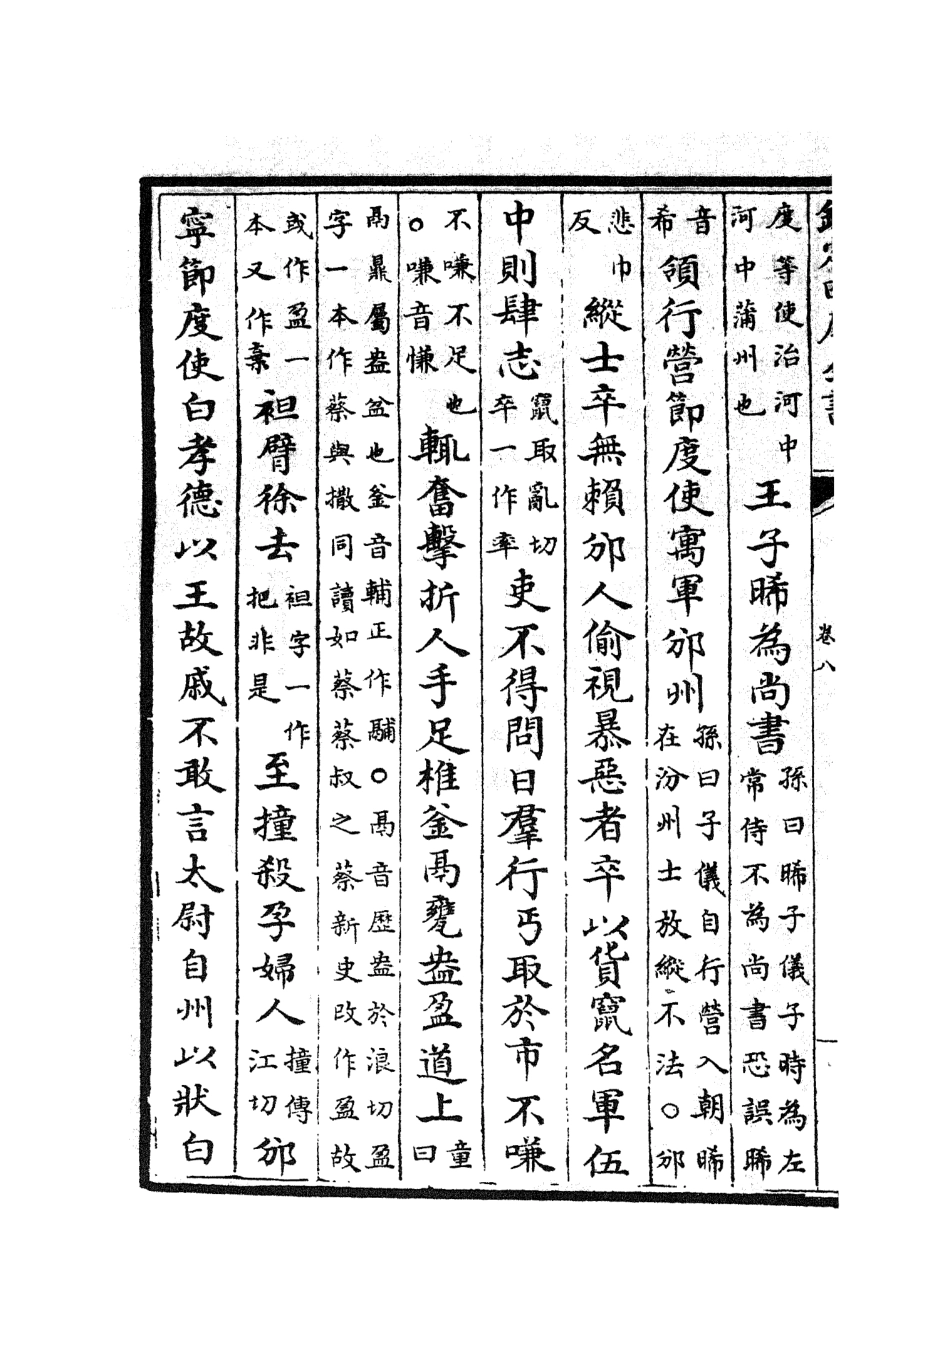 欽定四庫全書　卷八
度等使治河中河中蒲州也王子晞為尚書孫曰晞子儀子時為左常侍不為尚書恐誤晞
音希領行營節度使寓軍邠州孫曰子儀自行營入朝晞在汾州士放縱不法○邠
悲巾反縱士卒無賴邠人偷視暴惡者卒以貨竄名軍伍
中則肆志竄取亂切卒一作率吏不得問日羣行丐取於市不嗛
不嗛不足也○嗛音慊輒奮擊折人手足椎釜鬲甕盎盈道上童曰
鬲鼎屬盎盆也釜音輔正作䩉○鬲音歷盎於浪切盈字一本作蔡與撒同讀如蔡蔡叔之蔡新史改作盈故
或作盈一本又作棄袒臂徐去袒字一作把非是至撞殺孕婦人撞傳江切邠
寧節度使白孝德以王故戚不敢言太尉自州以狀白